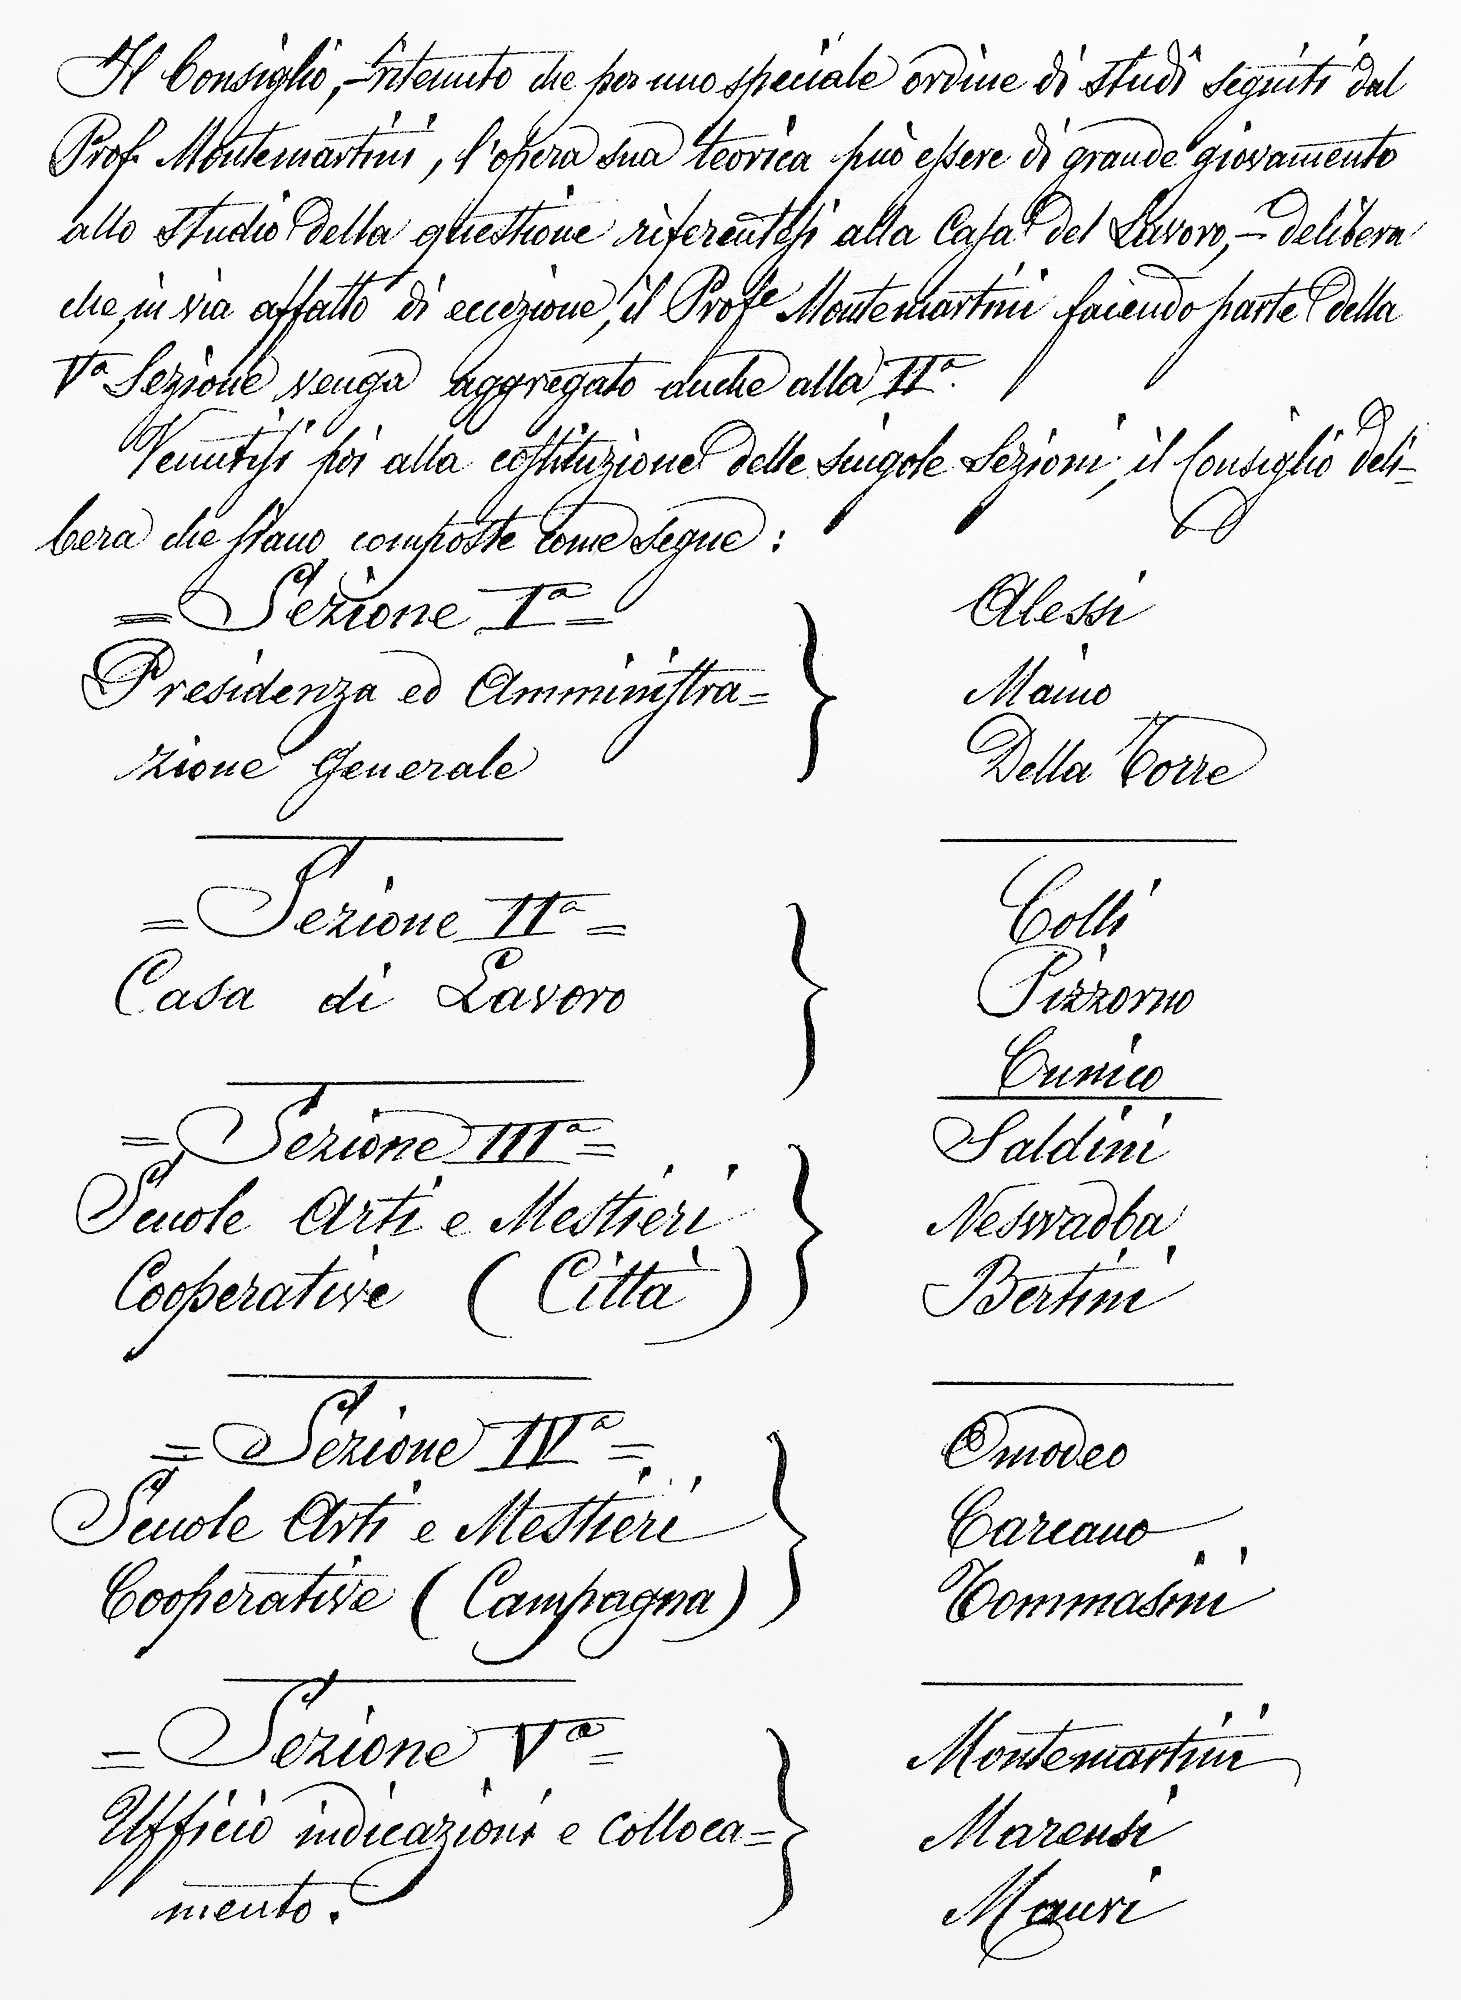 Il Consiglio, - ritenuto che per uno speciale ordine di studi seguiti dal
Prof. Montemartini, l'opera sua teorica può essere di grande giovamento
allo studio della questione riferentesi alla Casa del Lavoro, - delibera
che, in via affatto di eccezione, il Profe Montemartini facendo parte della
Vª Sezione venga aggregato anche alla IIª.
Venutisi poi alla costituzione delle singole Sezioni, il Consiglio deli-
bera che siano composte come segue:
= Sezione Iª =
Presidenza ed Amministra=
zione Generale
Alessi
Maino
Della Torre
= Sezione IIª =
Casa di Lavoro
Colli
Pizzorno
Cunico
= Sezione IIIª =
Scuole Arti e Mestieri
Cooperative (Città)
Saldini
Neswadba
Bertini
= Sezione IVª =
Scuole Arti e Mestieri
Cooperative (Campagna)
Omodeo
Carcano
Tommasini
= Sezione Vª =
Ufficio indicazioni e colloca=
mento.
Montemartini
Marensi
Mauri